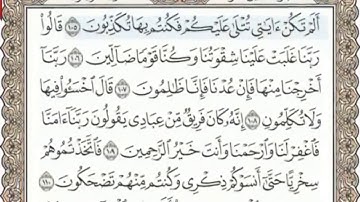 أَلَمْ تَكُنْ ءَايَٰتِى تُتْلَىٰ عَلَيْكُمْ فَكُنتُم بِهَا تُكَذِّبُونَ ١٠٥ قَالُوا۟
رَبَّنَا غَلَبَتْ عَلَيْنَا شِقْوَتُنَا وَكُنَّا قَوْمًا ضَآلِّينَ ١٠٦ رَبَّنَآ
أَخْرِجْنَا مِنْهَا فَإِنْ عُدْنَا فَإِنَّا ظَٰلِمُونَ ١٠٧ قَالَ ٱخْسَـُٔوا۟ فِيهَا
وَلَا تُكَلِّمُونِ ١٠٨ إِنَّهُۥ كَانَ فَرِيقٌ مِّنْ عِبَادِى يَقُولُونَ رَبَّنَآ ءَامَنَّا
فَٱغْفِرْ لَنَا وَٱرْحَمْنَا وَأَنتَ خَيْرُ ٱلرَّٰحِمِينَ ١٠٩ فَٱتَّخَذْتُمُوهُمْ
سِخْرِيًّا حَتَّىٰٓ أَنسَوْكُمْ ذِكْرِى وَكُنتُم مِّنْهُمْ تَضْحَكُونَ ١١٠